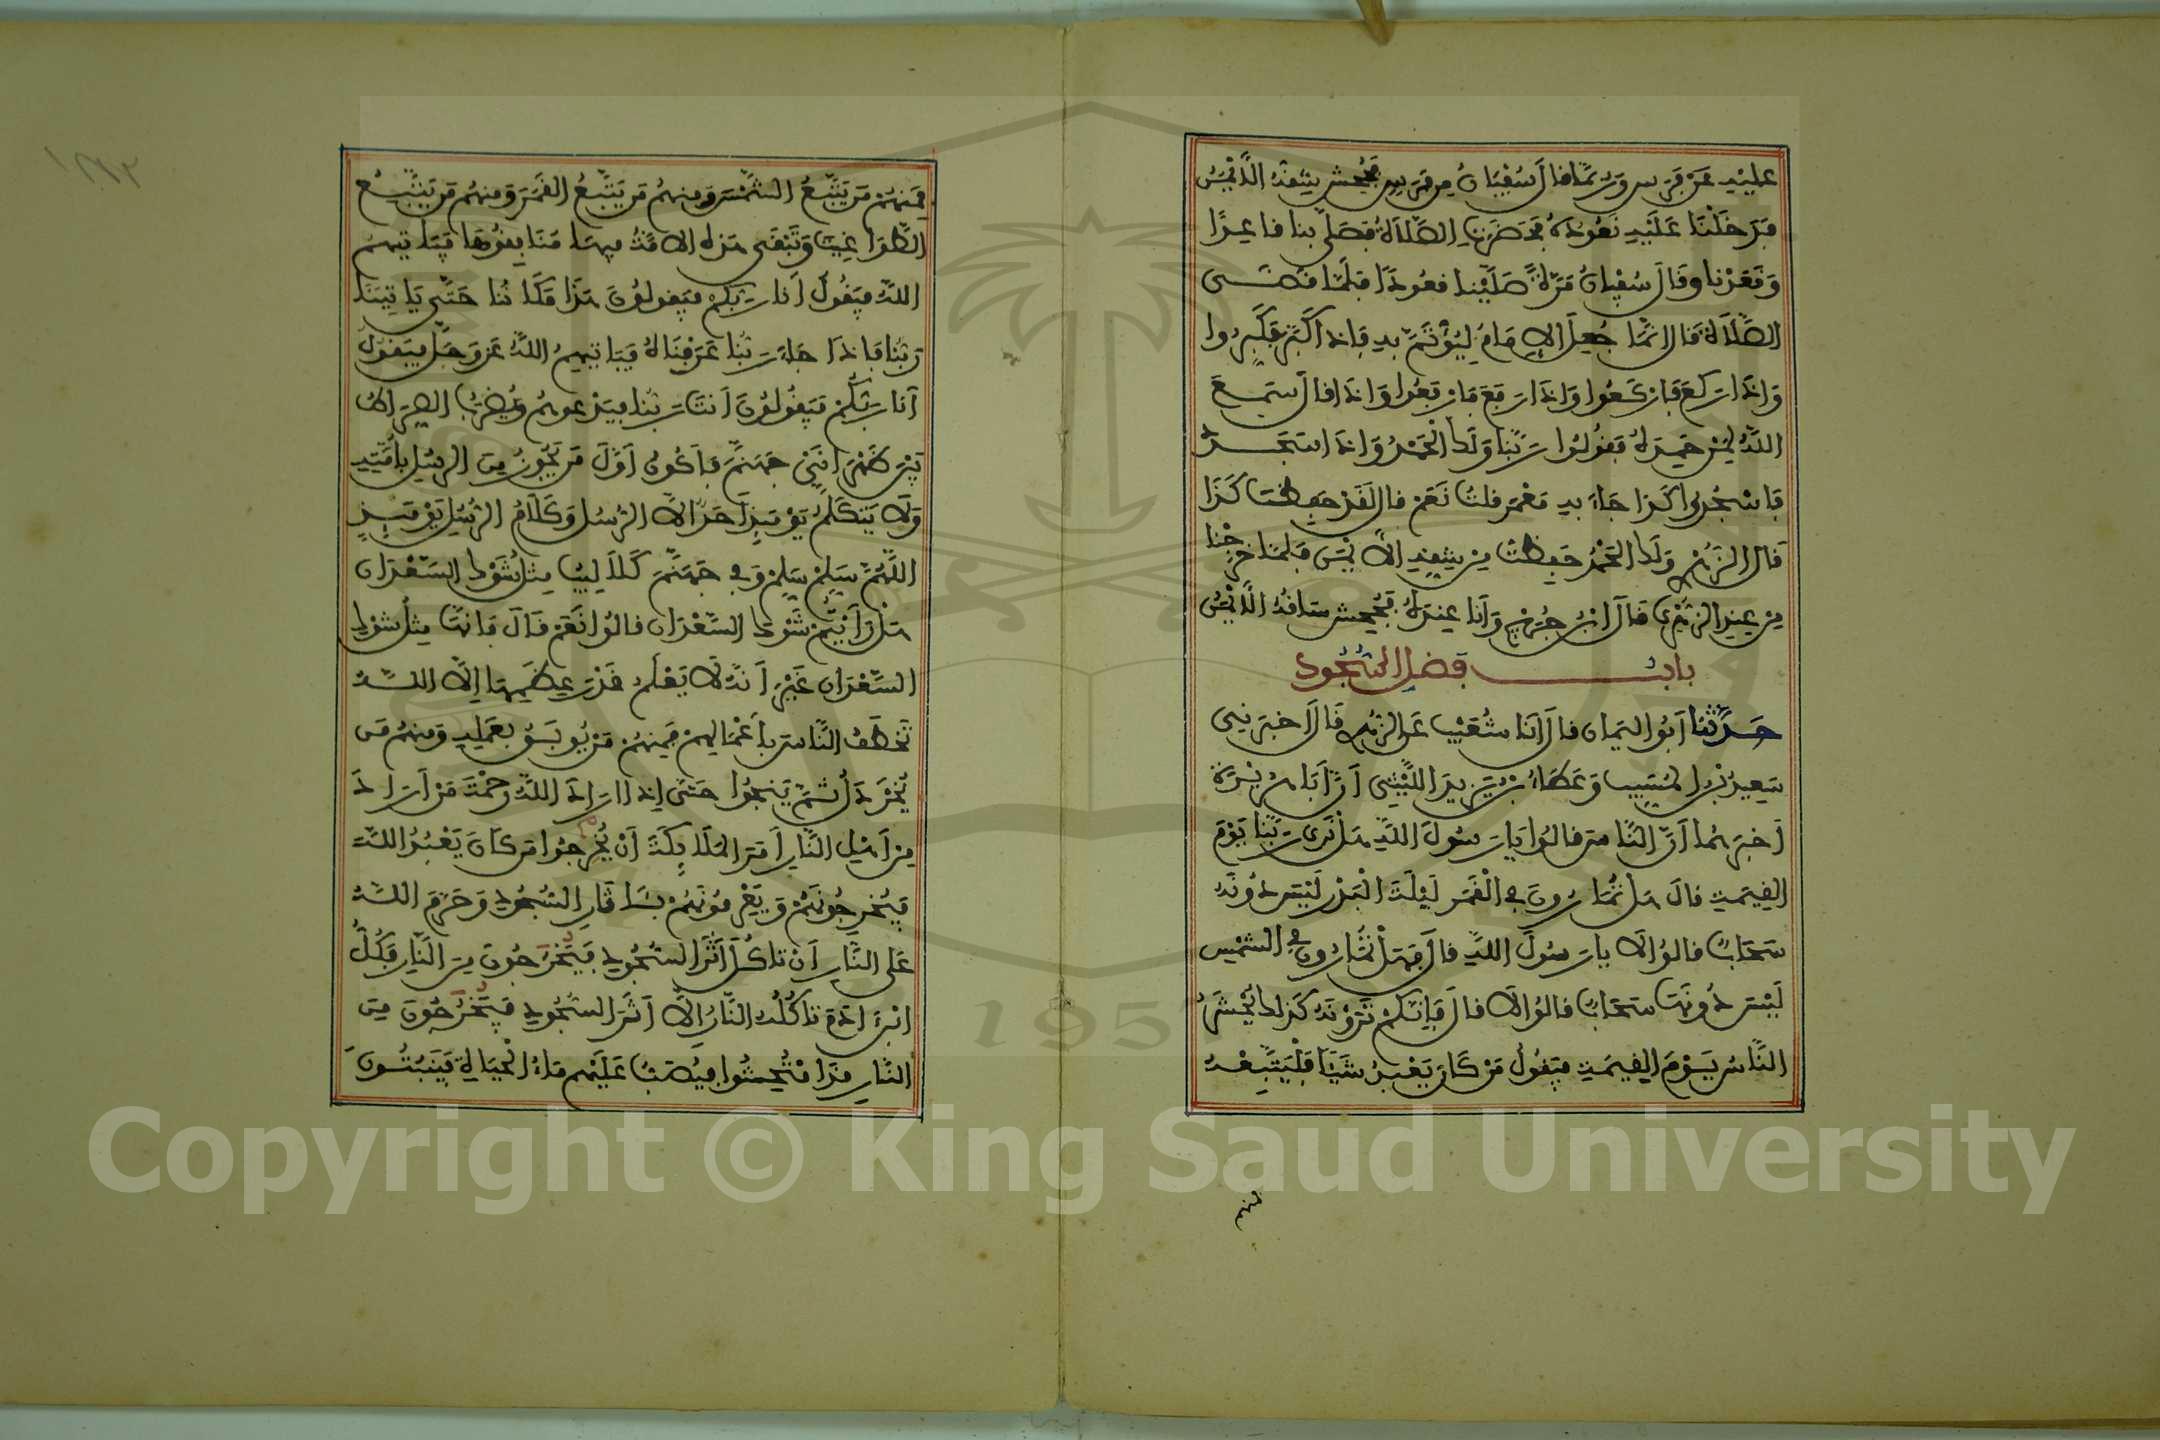 عليه عن فرس وربما قال سفيان من فرس فجحش شقه الايمن
فدخلنا عليه نعوده فحضرت الصلاة فصلى بنا قاعدا
وقعدنا وقال سفيان مرة صلينا قعودا فلما قضى
الصلاة قال انما جعل الامام ليوتم به فاذا كبر فكبروا
واذا ركع فاركعوا واذا رفع فارفعوا واذا قال سمع
الله لمن حمده فقولوا ربنا ولك الحمد واذا سجد
فاسجدوا كذا جاء به معمر قلت نعم قال لقد حفظ كذا
قال الزهري ولك الحمد حفظت من شقه الايمن فلما خرجنا
من عند الزهري قال ابن جريج وانا عنده فجحش ساقه الايمن
باب فضل السجود
حدثنا ابو اليمان قال انا شعيب عن الزهري قال اخبرني
سعيد بن المسيب وعطاء بن يزيد الليثي ان ابا هريرة
اخبرهما ان الناس قالوا يا رسول الله هل نرى ربنا يوم
القيمة قال هل تمارون في القمر ليلة البدر ليس دونه
سحاب قالوا لا يا رسول الله قال فهل تمارون في الشمس
ليس دونها سحاب قالوا لا قال فانكم ترونه كذلك يحشر
الناس يوم القيمة فيقول من كان يعبد شيئا فليتبعه
فمنهم
فمنهم من يتبع الشمس ومنهم من يتبع القمر ومنهم من يتبع
الطواغيت وتبقى هذه الامة فيها منافقوها فياتيهم
الله فيقول انا ربكم فيقولون هذا مكاننا حتى ياتينا
ربنا فاذا جاء ربنا عرفناه فياتيهم الله عز وجل فيقول
انا ربكم فيقولون انت ربنا فيدعوهم ويضرب الصراط
بين ظهراني جهنم فاكون اول من يجوز من الرسل بامته
ولا يتكلم يومئذ احد الا الرسل وكلام الرسل يومئذ
اللهم سلم سلم وفي جهنم كلاليب مثل شوك السعدان
هل رايتم شوك السعدان قالوا نعم قال فانها مثل شوك
السعدان غير انه لا يعلم قدر عظمها الا الله
تخطف الناس باعمالهم فمنهم من يوبق بعمله ومنهم من
يخردل ثم ينجوا حتى اذا اراد الله رحمة من اراد
من اهل النار امر الملائكة ان يخرجوا من كان يعبد الله
فيخرجونهم ويعرفونهم باثار السجود وحرم الله
على النار ان تاكل اثر السجود فيخرجون من النار فكل
ابن ادم تاكله النار الا اثر السجود فيخرجون من
النار قد امتحشوا فيصب عليهم ماء الحياة فينبتون
Copyright © King Saud University
1957